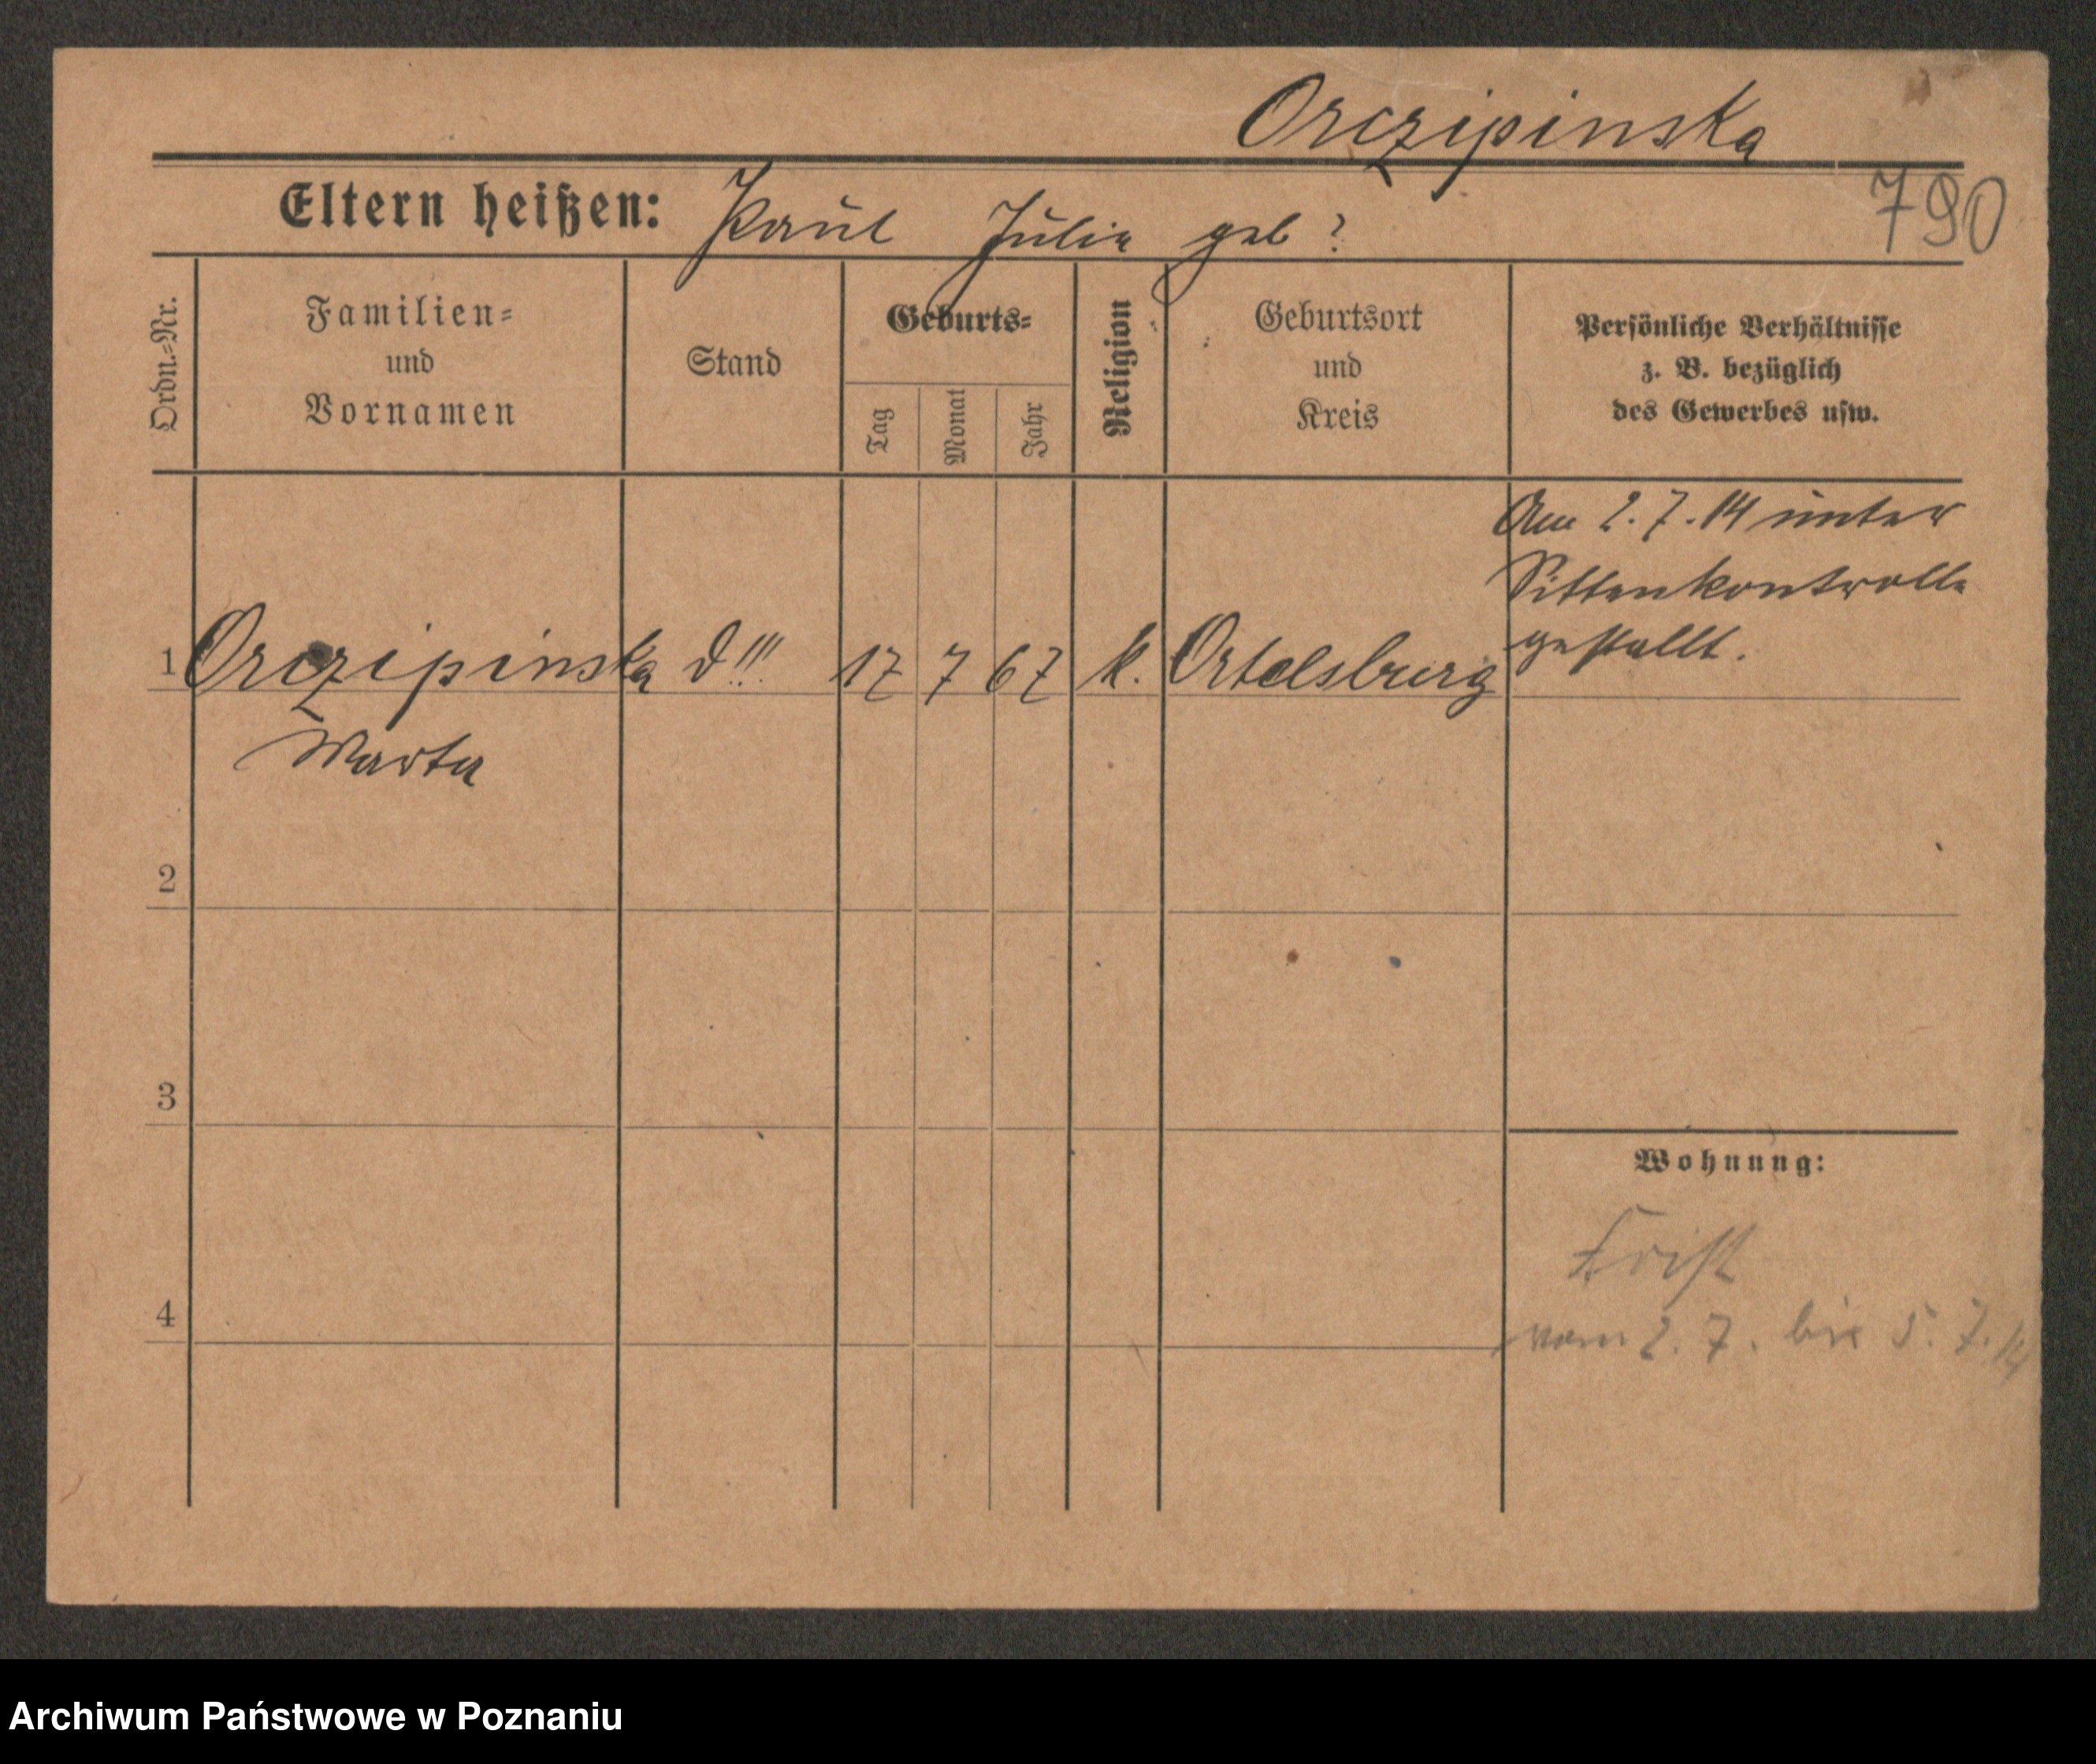 Orczipinska
790
Eltern heißen: Paul Julia geb?
Ordn.=Nr.
Familien=
und
Vornamen
Stand
Geburts=
Tag
Monat
Jahr
Religion
Geburtsort
und
Kreis
Persönliche Verhältnisse
z. B. bezüglich
des Gewerbes usw.
Am 2.7.14 unter
Sittenkontrolle
gestellt.
1 Orczipinska d!!! 17 7 67 k. Ortelsburg
Marta
2
3
4
Wohnung:
Frist
vom 2. 7. bis 5. 7. 14
Archiwum Państwowe w Poznaniu